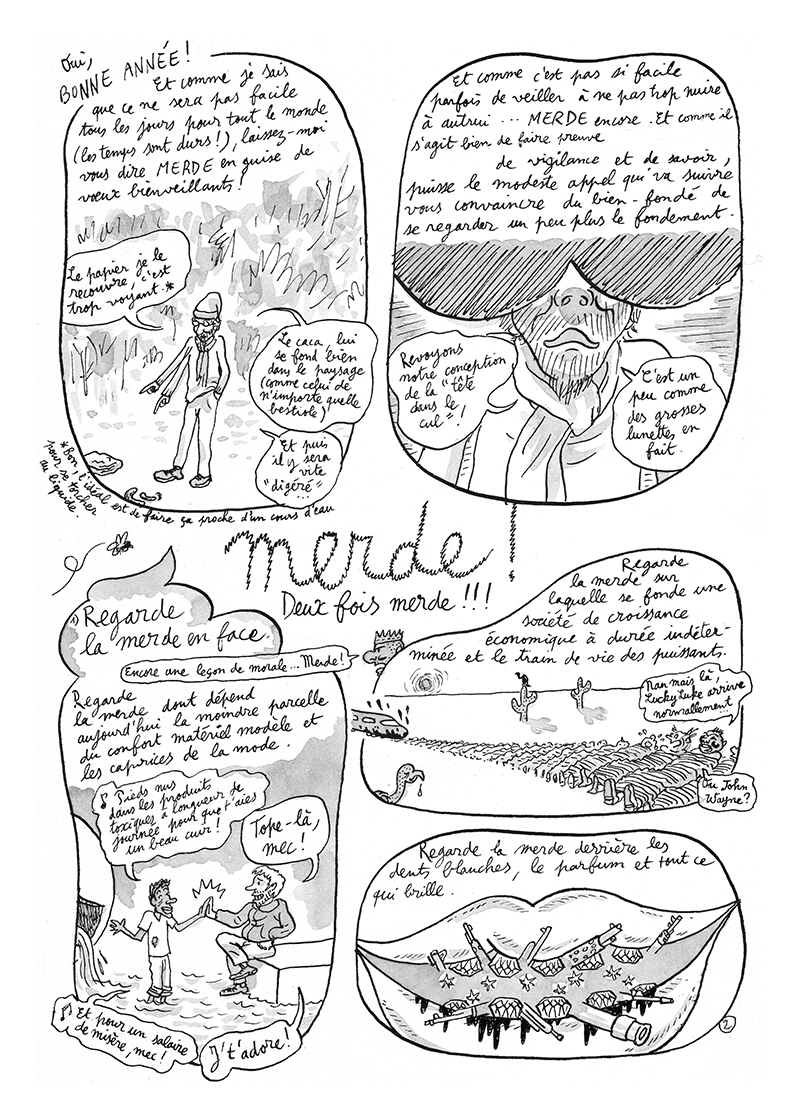 Oui,
BONNE ANNÉE !
Et comme je sais
que ce ne sera pas facile
tous les jours pour tout le monde
(les temps sont durs !), laissez-moi
vous dire MERDE en guise de
vœux bienveillants !
Le papier je le
recouvre, c'est
trop voyant.*
Le caca, lui
se fond bien
dans le paysage
(comme celui de
n'importe quelle
bestiole)
Et puis
il y sera
vite
"digéré"...
*Bon, l'idéal est de faire ça proche d'un cours d'eau
pour se torcher
au liquide.
Et comme c'est pas si facile
parfois de veiller à ne pas trop nuire
à autrui ... MERDE encore. Et comme il
s'agit bien de faire preuve
de vigilance et de savoir,
puisse le modeste appel qui va suivre
vous convaincre du bien-fondé de
se regarder un peu plus le fondement.
Revoyons
notre conception
de la "tête
dans le
cul" !
C'est un
peu comme
des grosses
lunettes en
fait.
merde !
Deux fois merde !!!
1) Regarde
la merde en face.
Encore une leçon de morale... Merde !
Regarde
la merde dont dépend
aujourd'hui la moindre parcelle
du confort matériel modèle et
les caprices de la mode.
♪ Pieds nus
dans les produits
toxiques à longueur de
journée pour que t'aies
un beau cuir !
Tope-là,
mec !
♪ Et pour un salaire
de misère, mec !
J't'adore !
Regarde
la merde sur
laquelle se fonde une
société de croissance
économique à durée indéter-
minée et le train de vie des puissants.
Nan mais là,
Lucky Luke arrive
normalement...
Ou John
Wayne ?
Regarde la merde derrière les
dents blanches, le parfum et tout ce
qui brille.
2